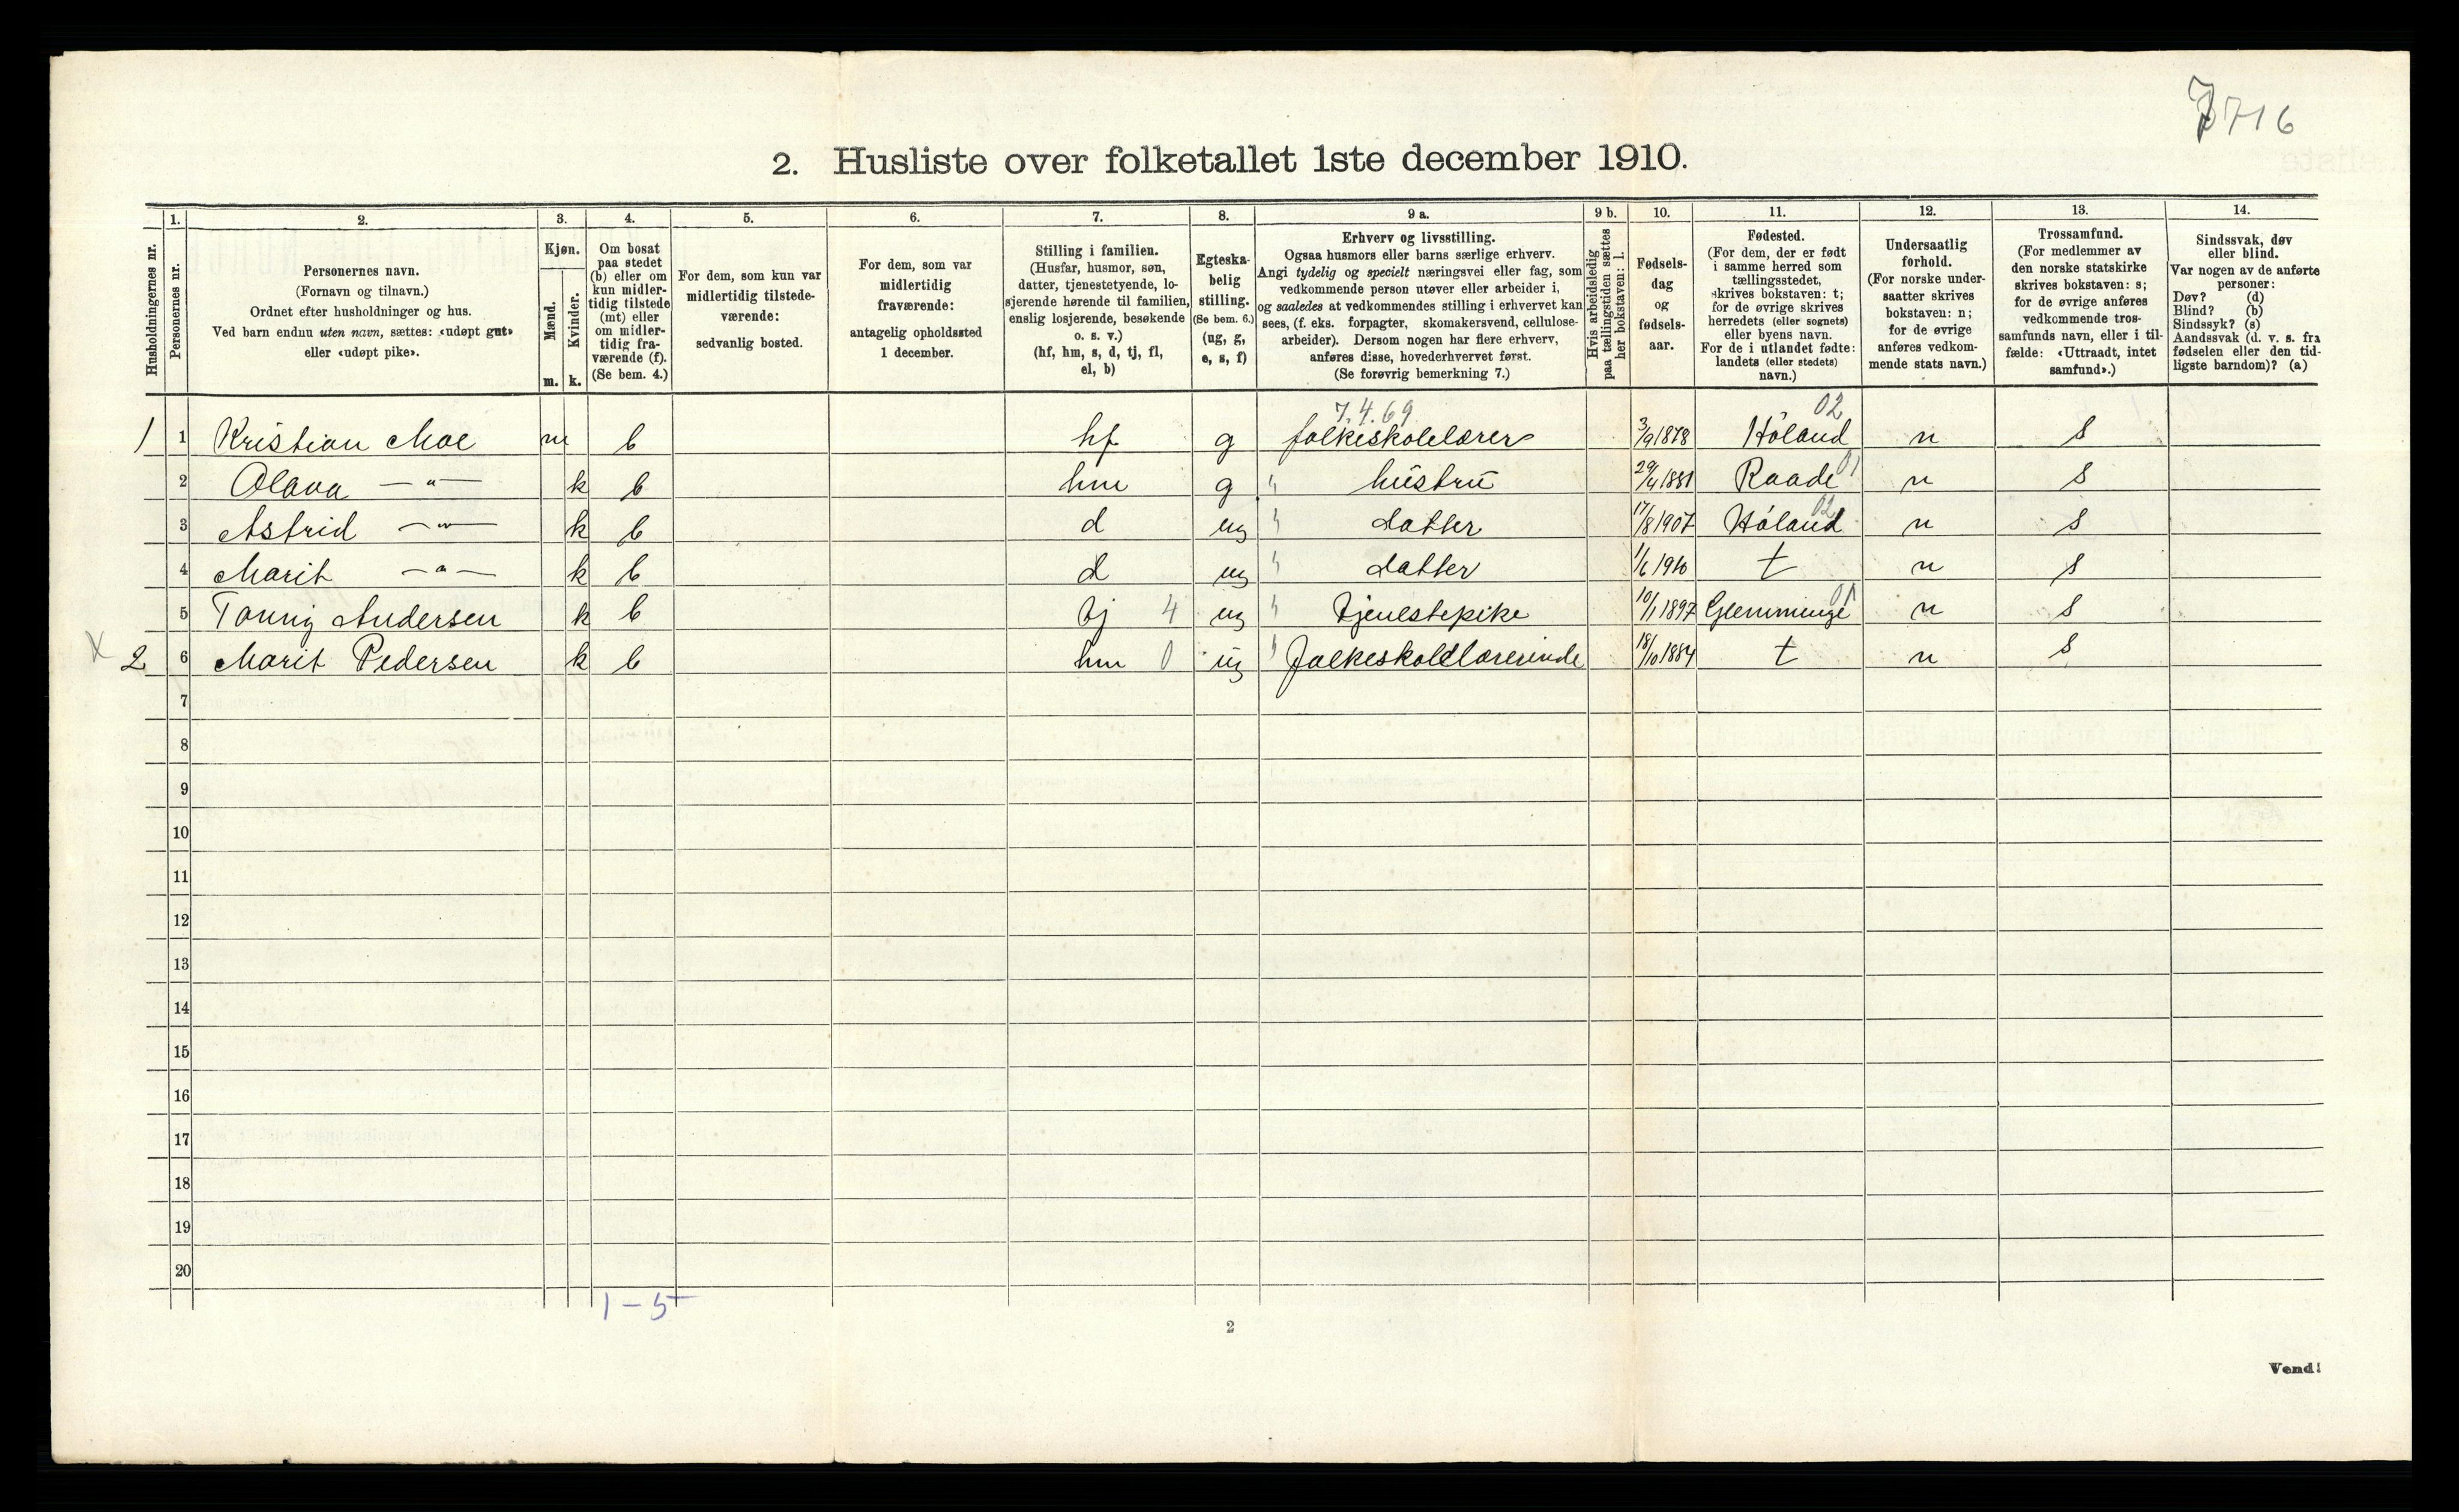 7716
2. Husliste over folketallet 1ste december 1910.
Husholdningernes nr.
1.
Personernes nr.
2.
Personernes navn.
(Fornavn og tilnavn.)
Ordnet efter husholdninger og hus.
Ved barn endnu uten navn, sættes: «udøpt gut»
eller «udøpt pike».
3.
Kjøn.
Mænd.
Kvinder.
m. k.
4.
Om bosat
paa stedet
(b) eller om
kun midler-
tidig tilstede
(mt) eller
om midler-
tidig fra-
værende (f).
(Se bem. 4.)
5.
For dem, som kun var
midlertidig tilstede-
værende:
sedvanlig bosted.
6.
For dem, som var
midlertidig
fraværende:
antagelig opholdssted
1 december.
7.
Stilling i familien.
(Husfar, husmor, søn,
datter, tjenestetyende, lo-
sjerende hørende til familien,
enslig losjerende, besøkende
o. s. v.)
(hf, hm, s, d, tj, fl,
el, b)
8.
Egteska-
belig
stilling.
(Se bem. 6.)
(ug, g,
e, s, f)
9 a.
Erhverv og livsstilling.
Ogsaa husmors eller barns særlige erhverv.
Angi tydelig og specielt næringsvei eller fag, som
vedkommende person utøver eller arbeider i,
og saaledes at vedkommendes stilling i erhvervet kan
sees, (f. eks. forpagter, skomakersvend, cellulose-
arbeider). Dersom nogen har flere erhverv,
anføres disse, hovederhvervet først.
(Se forøvrig bemerkning 7.)
9 b.
Hvis arbeidsledig
paa tællingstiden sættes
her bokstaven: l.
10.
Fødsels-
dag
og
fødsels-
aar.
11.
Fødested.
(For dem, der er født
i samme herred som
tællingsstedet,
skrives bokstaven: t;
for de øvrige skrives
herredets (eller sognets)
eller byens navn.
For de i utlandet fødte:
landets (eller stedets)
navn.)
12.
Undersaatlig
forhold.
(For norske under-
saatter skrives
bokstaven: n;
for de øvrige
anføres vedkom-
mende stats navn.)
13.
Trossamfund.
(For medlemmer av
den norske statskirke
skrives bokstaven: s;
for de øvrige anføres
vedkommende tros-
samfunds navn, eller i til-
fælde: «Uttraadt, intet
samfund».)
14.
Sindssvak, døv
eller blind.
Var nogen av de anførte
personer:
Døv? (d)
Blind? (b)
Sindssyk? (s)
Aandssvak (d. v. s. fra
fødselen eller den tid-
ligste barndom)? (a)
7.4.69 02
1 1 Kristian Moe m b hf g folkeskolelærer 3/9 1878 Höland n s
2 Olava — " — k b hm g " hustru 29/4 1881 Raade 01 n s
3 Astrid — " — k b d ug " datter 17/8 1907 Höland 02 n s
4 Marit — " — k b d ug " datter 1/6 1910 t n s
5 Tonny Andersen k b tj 4 ug " tjenestepike 10/1 1897 Glemminge 01 n s
X 2 6 Marit Pedersen k b hm 0 ug " Folkeskolelærerinde 18/10 1884 t n s
7
8
9
10
11
12
13
14
15
16
17
18
19
20
1 – 5
2
Vend!